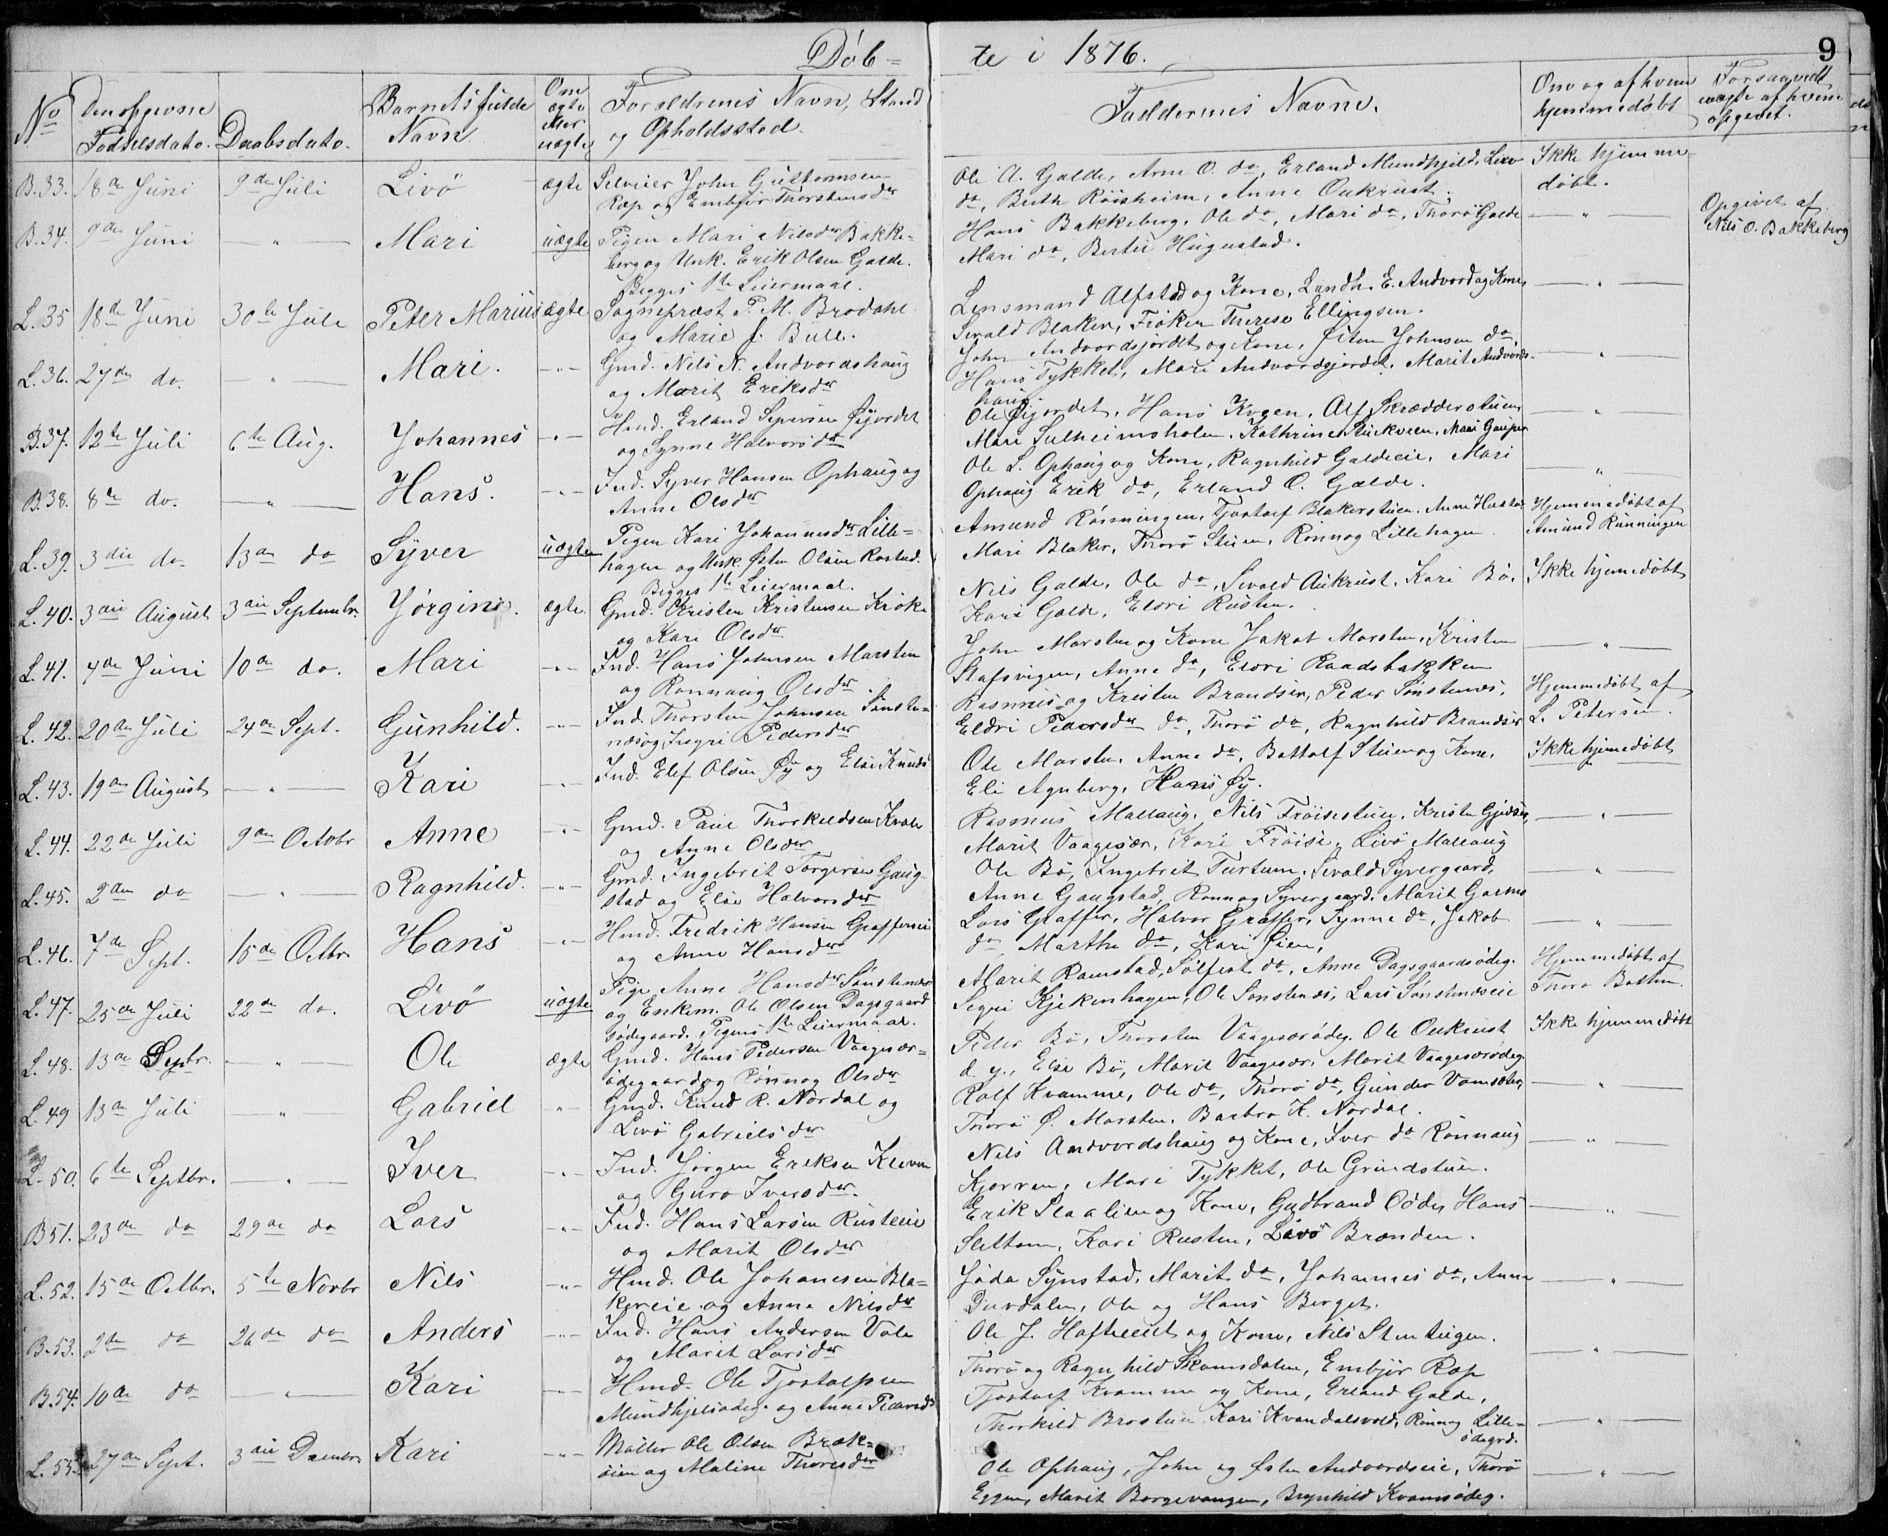 Døb-
te i 1876.
9
No
Den opgivne Fødselsdato.
Daabsdato.
Barnets fulde Navn.
Om ægte eller uægte
Forældrenes Navn, Stand og Opholdssted.
Faddernes Navne.
Om og af hvem hjemmedøbt
Forsaavidt uægte af hvem opgivet.
B.33. 18de Juni 9de Juli Livø ægte Selveier John Guttormsen
Ræp og Embjør Thorstensdr
Ole A. Galde, Arne O. do, Erland Mundhjeld, Livø
do, Berth Røisheim, Anne Aukrust.
Ikke hjemme-
døbt.
B.34. 9de Juni - " - Mari uægte Pigen Mari Nilsdr Bakke-
berg og Unk. Erik Olsen Galde.
Begges 1te Leiermaal.
Hans Bakkeberg, Ole do, Mari do, Thorø Galde
Mari do, Berte Hugustad.
- " -
Opgivet af
Nils O. Bakkeberg
L.35 18de Juni 30te Juli Peter Marius ægte Sognepræst P. M. Brodahl
og Marie f. Bull.
Lensmand Alfstad og Kone, Landh. E. Andvord og Kone,
Sivald Blaker, Frøken Therese Ellingsen.
- " -
L.36. 27de do. - " - Mari. - " - Gmd. Nils N. Andvordshaug
og Marit Eriksdr
John Andvordsjordet og Kone, Østen Johnsen do,
Hans Tykket, Mari Andvordsjordet, Marit Andvords-
haug.
- " -
B.37. 12te Juli 6te Aug. Johannes - " - Hmd. Erland Siversen Øijordet
og Synne Halvorsdr
Ole Øijordet, Hans Kvgen, Alf Skrædderstuen
Mari Sulheimsholen, Kathrine Stuekveen, Mari Gaupar
- " -
B.38. 8de do. - " - Hans. - " - Ind. Syver Hansen Ophaug og
Anne Olsdr
Ole S. Ophaug og Kone, Ragnhild Galdeeie, Mari
Ophaug Erik do, Erland O. Galde.
- " -
L.39. 3die do. 13de do Syver uægte Pigen Kari Johannesdr Lille-
hagen og Unk. Østen Olsen Rostad.
Begges 1te Leiermaal.
Amund Rønningen, Tjostolf Blakerstuen, Anne Hastad
Mari Blaker, Thorø Stuen, Rønnog Lillehagen.
Hjemmedøbt af
Amund Rønningen
L.40. 3die August 3die Septembr. Jørgine. ægte Gmd. Kristen Kristensen Kroke
og Kari Olsdr
Nils Galde, Ole do, Sivald Aukrust, Kari Bø,
Kari Galde, Eldri Rusten.
Ikke hjemmedøbt
L.41. 4de Juni 10de do. Mari - " - Ind. Hans Johnsen Marsten
og Rønnaug Olsdr.
John Marsten og Kone Jakob Marsten, Kristen
Stafsvigen, Anne do, Eldri Raadsbakken
- " -
L.42. 20de Juli 24de Sept. Gunhild. - " - Ind. Thorsten Johnsen Sønste-
næs og Ingri Pedersdr
Rasmus og Kristen Brandsar, Peder Sønstenæs,
Eldri Pedersdr do, Thorø do, Ragnhild Brandsar
Hjemmedøbt af
L. Petersen.
L.43. 19de August - " - Kari - " - Ind. Elef Olsen Øy og Elsie Knudsdr
Ole Marsten, Anne do, Bottolf Stuen og Kone,
Eli Aguberg, Hans Øy.
Ikke hjemmedøbt
L.44. 22de Juli 9de Octobr Anne - " - Gmd. Paul Thorkildsen Kvale
og Anne Olsdr
Rasmus Mallaug, Nils Frøisestuen, Kristen Gjedsar,
Marit Vaagesær, Kari Frøise, Livø Mallaug
- " -
L.45. 2den do - " - Ragnhild. - " - Gmd. Ingebrit Torgersen Gaug-
stad og Elsie Halvorsdr
Ole Bø, Ingebrit Turtum, Sivald Syvergaard,
Anne Gaugstad, Rønnog Syvergaard, Marit Garmo
- " -
L.46. 7de Sept. 15de Octbr. Hans - " - Hmd. Fredrik Hansen Graffereie
og Anne Hansdr
Lars Graffer, Halvor Graffer, Synne do, Jakob
do, Marthe do, Kari Øien,
- " -
L.47. 25de Juli 22de do. Livø uægte Pige Anne Hansdr Sønstenæs
og Enkem. Ole Olsen Dagsgaard
sødegaard. Pigens 1te Leiermaal.
Marit Ramstad, Sølfest do, Anne Dagsgaardsødeg.
Segri Kjekenhagen, Ole Sønstenæs, Lars Sønstenæseie
Hjemmedøbt af
Thora Botten.
L.48. 13de Sepbr. - " - Ole ægte Gmd. Hans Pedersen Vaagesær-
ødegaard og Rønnog Olsdr
Peder Bø, Thorsten Vaagesærødeg. Ole Aukrust
d. y., Else Bø, Marit Vaagesær, Marit Vaagesærødeg.
Ikke hjemmedøbt
L.49 13de Juli - " - Gabriel " Gmd. Knud R. Nordal og
Livø Gabrielsdr
Rolf Kvamme, Ole do, Thorø do, Gunder Vamsøter,
Thorø O. Marsten, Barbro K. Nordal.
- " -
L.50. 6te Septbr. - " - Iver - " - Ind. Jørgen Eriksen Kleven
og Guro Iversdr.
Nils Andvordshaug og Kone, Iver do Rønnaug
Kjorren, Mari Tykket, Ole Grindstuen.
- " -
B.51. 23de do 29de do Lars - " - Ind. Hans Larsen Rusteeie
og Marit Olsdr
Erik Slaalien og Kone, Gudbrand Odde, Hans
Slettom, Kari Rusten, Livø Brænden.
- " -
L.52. 15de Octbr. 5te Novbr Nils - " - Hmd. Ole Johannesen Bla-
kereie og Anne Nilsdr
Jøda Synstad, Marit do, Johannes do, Anne
Durdalen, Ole og Hans Berget.
- " -
B.53. 2de do 26de do Anders - " - Ind. Hans Andersen Vole
og Marit Larsdr
Ole J. Hoftuen og Kone, Nils Stentugen.
Thorø og Ragnhild Skamsdalen, Embjør Ræp
- " -
B.54. 10de do - " - Kari - " - Hmd. Ole Tjostolfsen
Mundhjelsødeg. og Anne Pedersdr
Tjostolf Kvamme og Kone, Erland Galde,
Thorkild Brostuen, Kari Kvandalsvold, Rønnog Lille-
ødegrd.
- " -
L.55. 27de Sept. 3die Decembr. Kari - " - Møller Ole Olsen Bræk-
øien og Maline Thoresdr
Ole Ophaug, John og Østen Andvordseie, Thorø
Eggen, Marit Borgevangen, Brynhild Kvamsødeg.
- " -